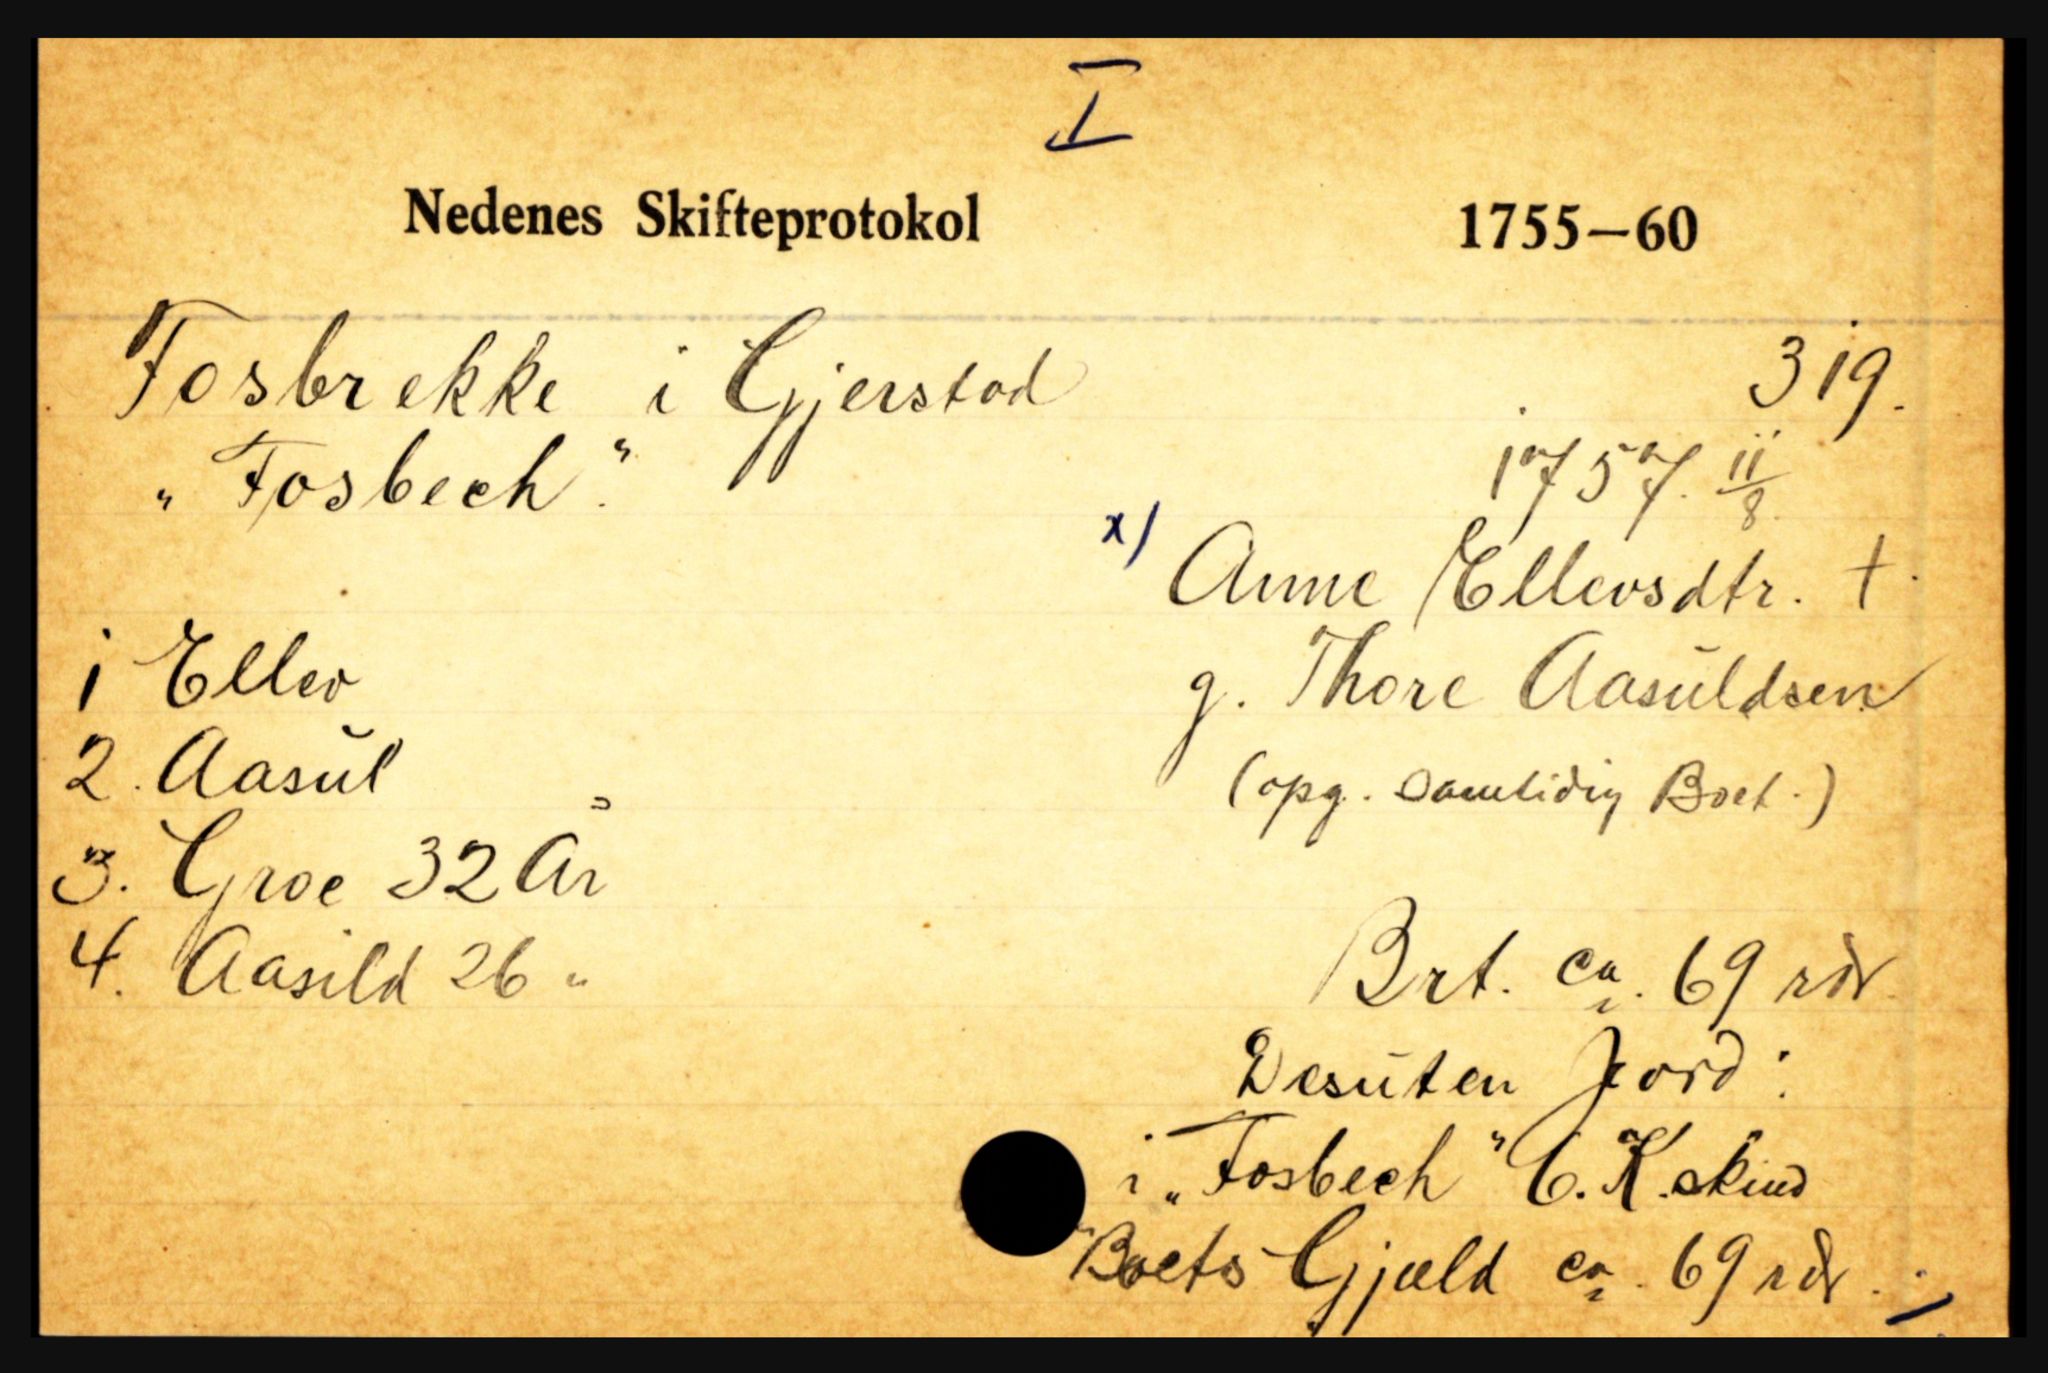 I
Nedenes Skifteprotokol 1755—60
Fosbrekke i Gjerstad 319.
„Fosbech". 1757. 11/8.
x) Anne Ellevsdtr. †.
1 Ellev
g. Thore Aasuldsen
2. Aasul
(opg. samtidig Boet.)
3. Groe 32 År
4. Aasild 26 "
Brt. ca. 69 rdr
Desuten Jord:
i „Fosbech" C. K. skind
Boets Gjæld ca. 69 rdr.